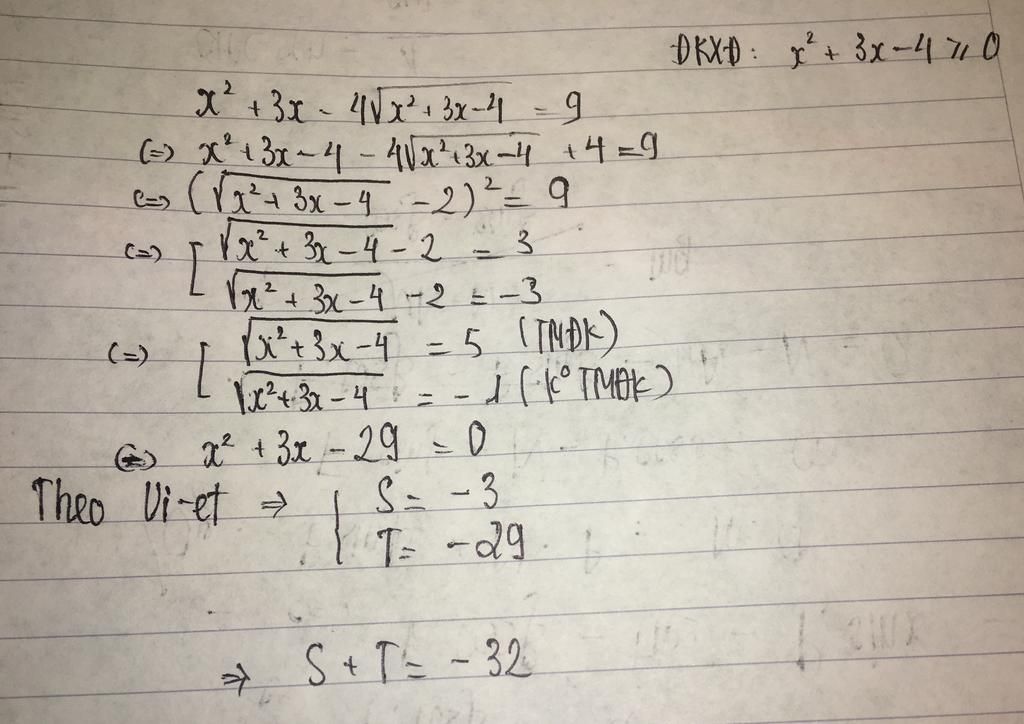 ĐKXĐ: x² + 3x - 4 ⩾ 0
x² + 3x - 4√(x² + 3x - 4) = 9
(=) x² + 3x - 4 - 4√(x² + 3x - 4) + 4 = 9
(=) (√(x² + 3x - 4) - 2)² = 9
(=) [ √(x² + 3x - 4) - 2 = 3
√(x² + 3x - 4) - 2 = -3
(=) [ √(x² + 3x - 4) = 5 (TMĐK)
√(x² + 3x - 4) = -1 (K° TMĐK)
(=) x² + 3x - 29 = 0
Theo Vi-et ⇒ { S = -3
T = -29
⇒ S + T = -32